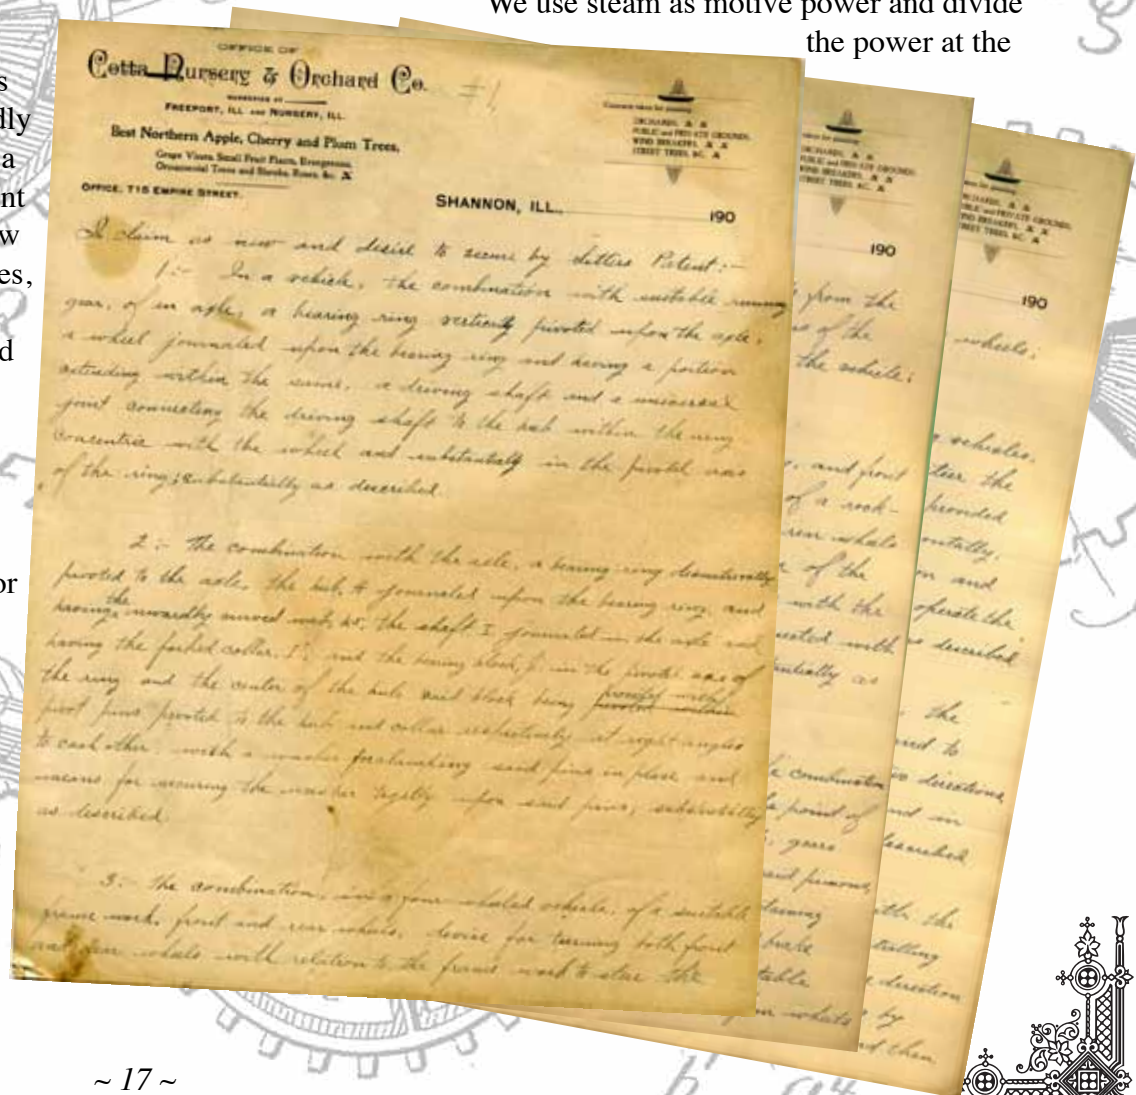 We use steam as motive power and divide
the power at the
s
dly
a
nt
w
es,
d
or
OFFICE OF
Cotta Nursery & Orchard Co. #1
NURSERIES AT
FREEPORT, ILL AND NURSERY, ILL.
Best Northern Apple, Cherry and Plum Trees,
Grape Vines, Small Fruit Plants, Evergreens,
Ornamental Trees and Shrubs, Roses, &c.
OFFICE, 715 EMPIRE STREET.
Contracts taken for planting
ORCHARDS,
PUBLIC and PRIVATE GROUNDS
WIND BREAKERS,
STREET TREES, &C.
SHANNON, ILL., 190
I claim as new and desire to secure by Letters Patent:-
1:- In a vehicle, the combination with suitable running
gear, of an axle, a bearing ring vertically pivoted upon the axle,
a wheel journaled upon the bearing ring and having a portion
extending within the same, a driving shaft and a universal
joint connecting the driving shaft to the hub within the ring
concentric with the wheel and substantially in the pivotal axis
of the ring; substantially as described.
2:- The combination with the axle, a bearing ring diametrically
pivoted to the axle, the hub, journaled upon the bearing ring, and
having the inwardly curved web, the shaft I journaled in the axle and
having the forked collar, I; and the bearing block, in the pivotal axis of
the ring and the center of the hub said block being provided with pivoted within
pivot pins pivoted to the hub and collar respectively at right angles
to each other; with a washer for locking said pins in place and
means for securing the washer rigidly upon said pins, substantially
as described.
3:- The combination, in a four wheeled vehicle, of a suitable
frame work, front and rear wheels, device for turning both front
and rear wheels with relation to the frame work to steer the
PUBLIC and PRIVATE GROUNDS
WIND BREAKERS,
STREET TREES, &C.
190
from the
of the
the vehicle;
and front
of a rock-
rear wheels
of the
with the
connected with
substantially as
combination
point of
gears
said pinions
brake
wheels
190
wheels;
vehicles,
steer the
provided
horizontally,
and
operate the
as described
the
to
directions,
and in
described
with the
controlling
direction
by
and then
~ 17 ~